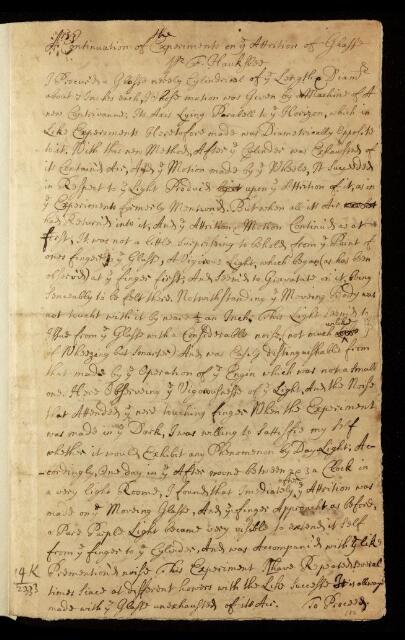 A Continuation of the Experiments on ye Attrition of Glasse
pr F. Hauksbee
I Procured a Glasse neerly Cylindrical of ye Length & Diamr
about 7 Inches each, Whose motion was Given by a Machine of A
new Contrivance; Its Axis Lying Parallell to ye Horizon, which in
Like Experiments Heretofore made was Diametrically Opposite
to it. With this new Method, After ye Cylinder was Exhausted of
its Contain'd Air, And ye Motion made by ye Wheele, It Succeeded
in Respect to ye Light Produc'd upon ye Attrition of it, as in
ye Experiments formerly Mention'd. But when all it Air
had Return'd into it, And ye Attrition, Motion Continu'd as at
first, It was not a little Surprising to behold, from ye Point of
ones finger & ye Glasse, A Vigorous Light, which began (as has been
observ'd) at ye finger first; And seem'd to Gravitate on it, being
Senseably to be felt there. Notwithstanding ye Moveing Body was
not toucht with it by neare ½ an Inch. This Light seem'd to
Issue from ye Glasse with a Considerable noise, (not much unlike that
of Wheezing but Smarter) And was Easily distinguishable from
that made by ye Operation of ye Engin which was not a small
one. Here Observeing ye Vigorousnesse of ye Light, And the Noise
that Attended ye neer touching finger When the Experiment
was made in ye Dark, I was willing to Sattisfie my Self
whether it would Exhibit any Phenomenon by Day Light; Ac-
cordingly, One day in ye After noone between 2 & 3 a Clock in
a very light Roome, I found, that Imediately after ye Attrition was
made on ye Moveing Glasse, And ye finger Approacht as Before,
a Pure Purple Light became very visible to extend it Self
from ye finger to ye Cylinder, And was Accompani'd with ye like
Premention'd noise. This Experiment I have Repeated several
times Since at different howers with the Like Successe It is allways
made with ye Glasse unexhausted of its Air. To Proceed